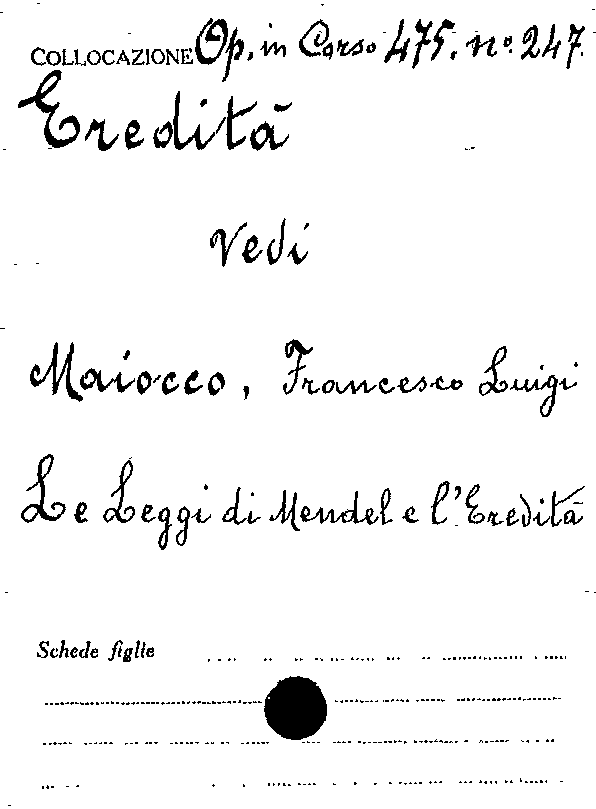 COLLOCAZIONE Op. in Corso 475. nº. 247.
Eredità
Vedi
Maiocco, Francesco Luigi
Le Leggi di Mendel e l'Eredità
Schede figlie